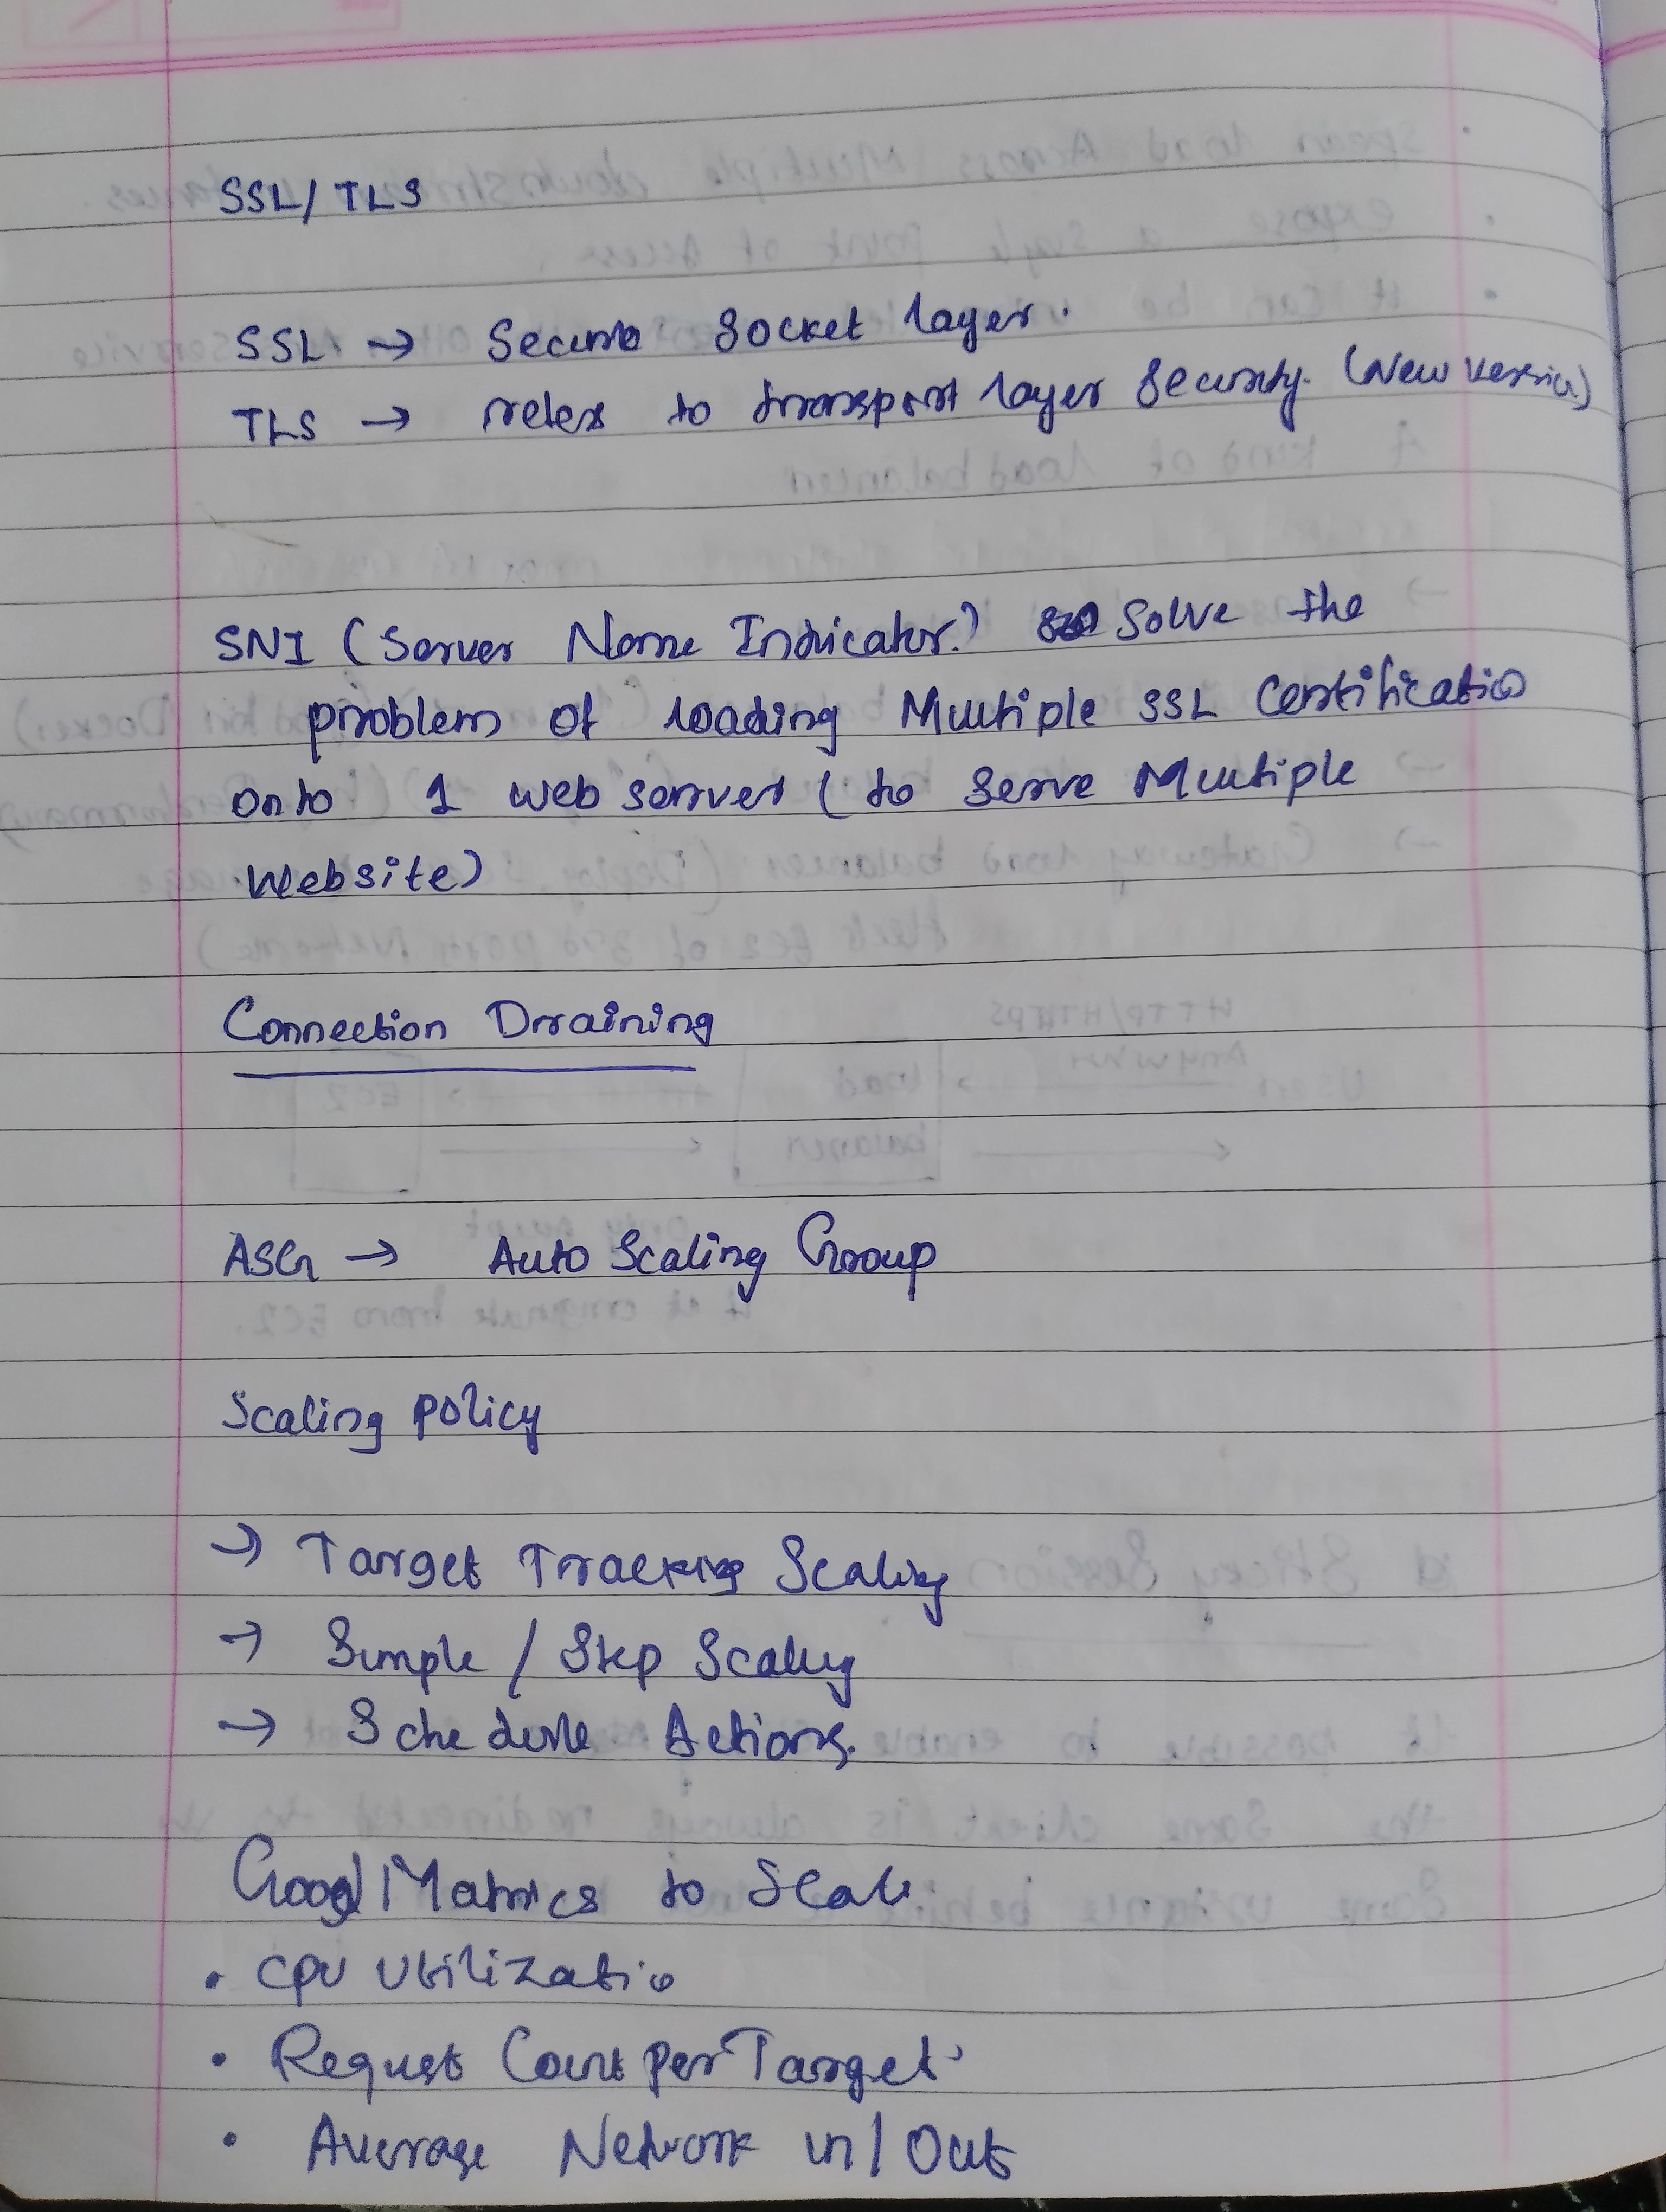 SSL/TLS
SSL → Secure Socket layer.
TLS → refers to transport layer Security. (New Version)
SNI (Server Name Indicator) Solve the
problem of loading Multiple SSL Certificatio
onto 1 web server (to serve Multiple
Website)
Connection Draining
ASG → Auto Scaling Group
Scaling policy
→ Target Tracking Scaling
→ Simple / Step Scaling
→ Schedule Actions.
Good Matrics to Scale
• CPU Utilizatio
• Request Count per Target
• Average Network in/Out